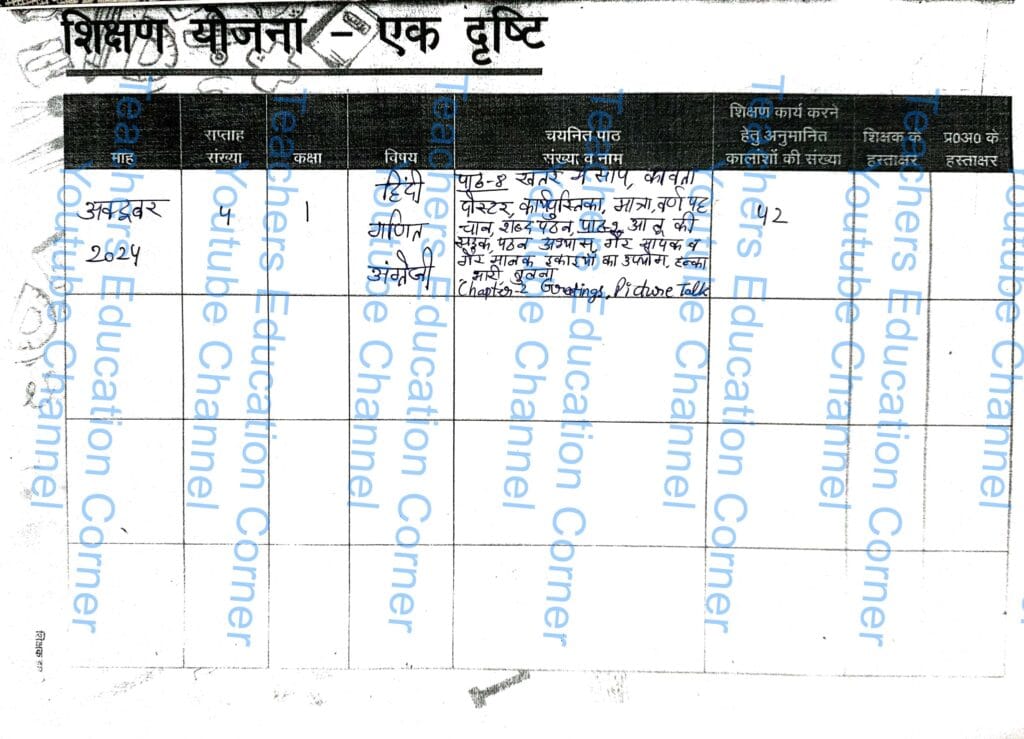 शिक्षण योजना - एक दृष्टि
माह
सप्ताह
संख्या
कक्षा
विषय
चयनित पाठ
संख्या व नाम
शिक्षण कार्य करने
हेतु अनुमानित
कालाशों की संख्या
शिक्षक के
हस्ताक्षर
प्र0अ0 के
हस्ताक्षर
अक्टूबर
2024
4
1
हिंदी
गणित
अंग्रेजी
पाठ-8 खतरे में सांप, कविता
पोस्टर, कार्यपुस्तिका, मात्रा, वर्ण पह
चान, शब्द पठन, पाठ-2, आलू की
सड़क, पठन अभ्यास, गैर मापक व
गैर मानक इकाइयों का उपयोग, हल्का
भारी, तुलना
Chapter-2 Greetings, Picture Talk
42
शिक्षक
Teachers Education Corner
Youtube Channel
Teachers Education Corner
Youtube Channel
Teachers Education Corner
Youtube Channel
Teachers Education Corner
Youtube Channel
Teachers Education Corner
Youtube Channel
Teachers Education Corner
Youtube Channel